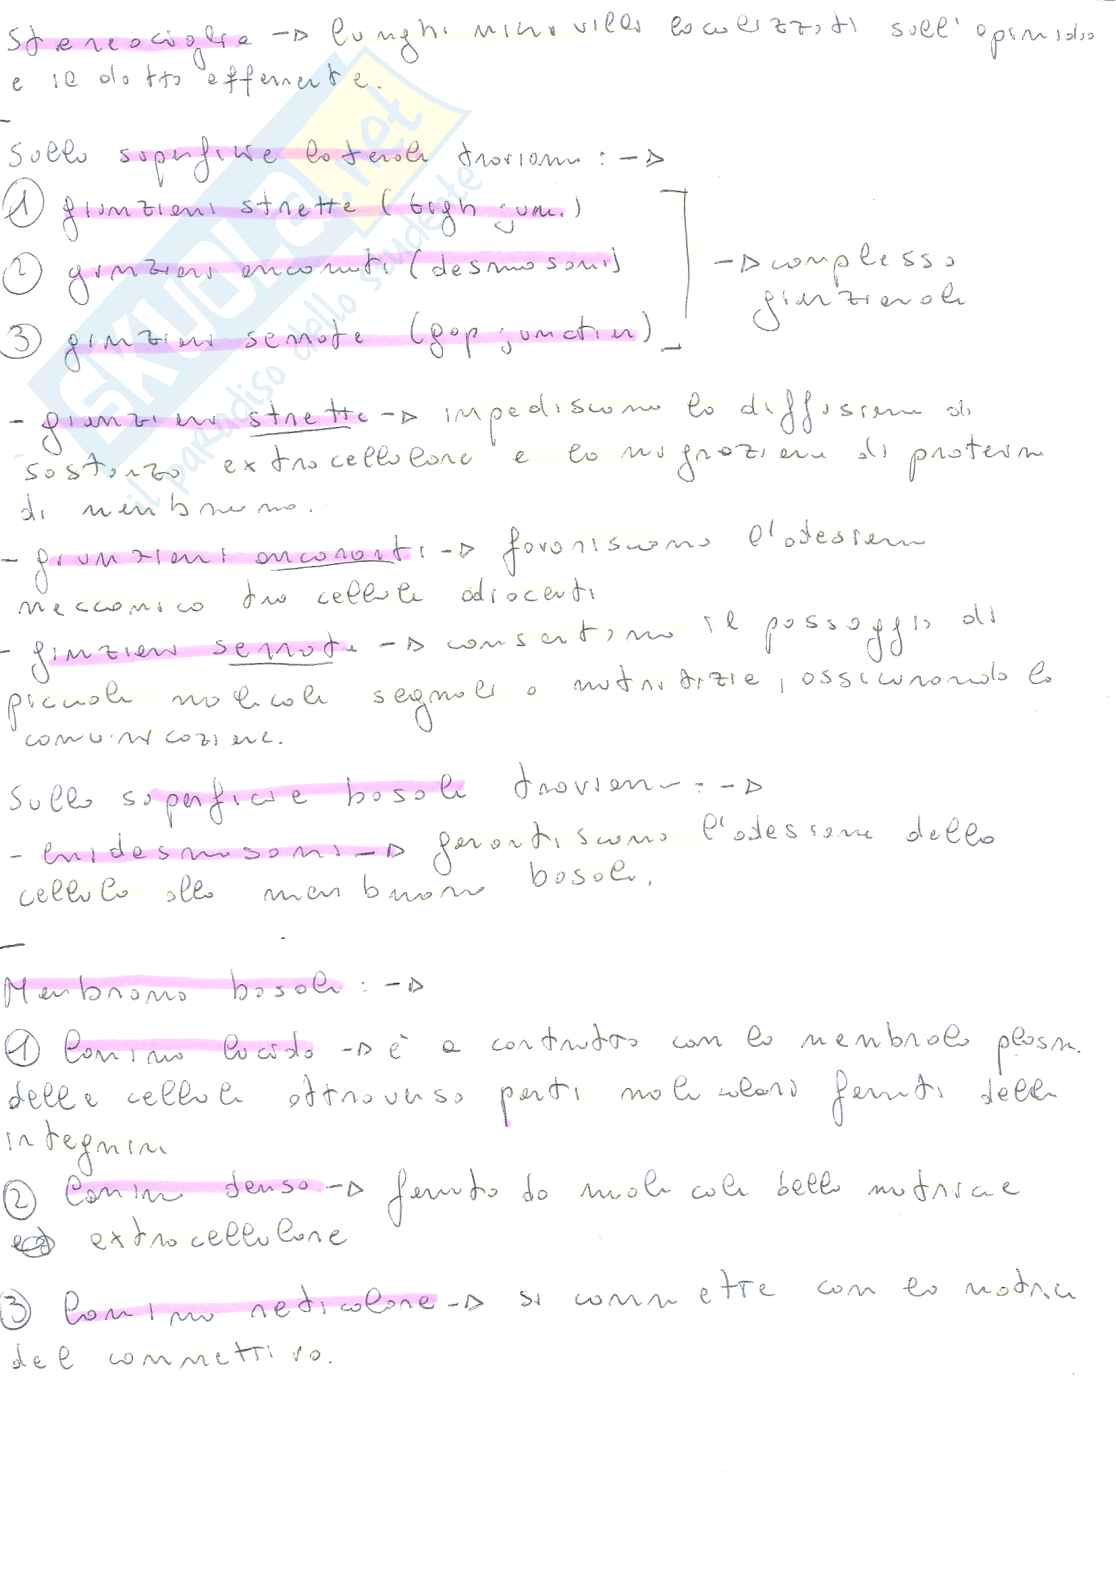 Stereociglia -> lunghi microvilli localizzati sull'epididimo
e il dotto efferente.
Sulla superficie laterale troviamo: ->
① giunzioni strette (tigh jun.)
② giunzioni ancoranti (desmosomi)
③ giunzioni serrate (gap junction)
-> complesso
giunzionale
- giunzioni strette -> impediscono la diffusione di
sostanza extracellulare e la migrazione di proteine
di membrana.
- giunzioni ancoranti -> favoriscono l'adesione
meccanica tra cellule adiacenti
- giunzioni serrate -> consentono il passaggio di
piccole molecole segnali o nutritizie, assicurando la
comunicazione.
Sulla superficie basale troviamo: ->
- emidesmosomi -> garantiscono l'adesione della
cellula alla membrana basale.
Membrana basale: ->
① lamina lucida -> è a contatto con la plasm.
delle cellule attraverso ponti molecolari formati dalle
integrine
② lamina densa -> formata da molecole della matrice
extracellulare
③ lamina reticolare -> si connette con la matrice
del connettivo.
SKUOLA.net
il paradiso dello studente